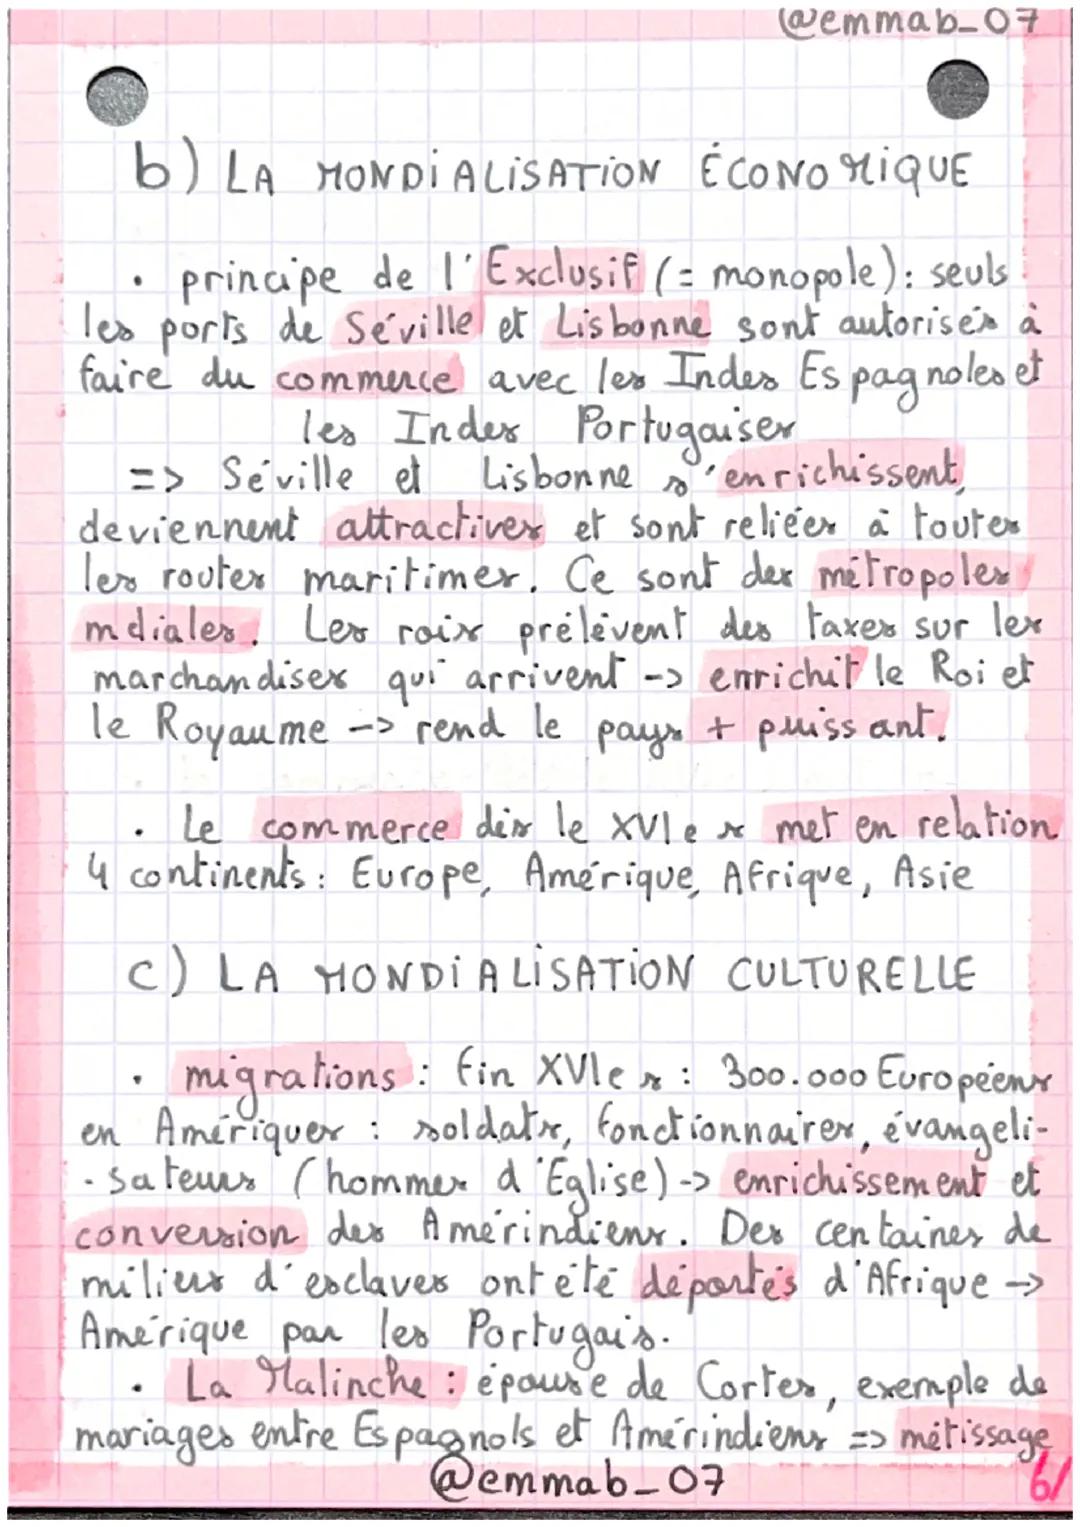 @emmab_07
b) LA MONDIALISATION ÉCONOMIQUE
• principe de l'Exclusif (= monopole): seuls
les ports de Séville et Lisbonne sont autorisés à
faire du commerce avec les Indes Espagnoles et
les Indes Portugaises
=> Séville et Lisbonne s'enrichissent,
deviennent attractives et sont reliées à toutes
les routes maritimes. Ce sont des métropoles
mdiales. Les rois prélèvent des taxes sur les
marchandises qui arrivent -> enrichit le Roi et
le Royaume -> rend le pays + puissant.
• Le commerce dès le XVIe s met en relation
4 continents: Europe, Amérique, Afrique, Asie
c) LA MONDIALISATION CULTURELLE
• migrations : fin XVIe s : 300.000 Européens
en Amériques : soldats, fonctionnaires, évangeli-
-sateurs (hommes d'Église) -> enrichissement et
conversion des Amérindiens. Des centaines de
miliers d'esclaves ont été déportés d'Afrique ->
Amérique par les Portugais.
• La Malinche : épouse de Cortes, exemple de
mariages entre Espagnols et Amérindiens => métissage
@emmab_07
6/